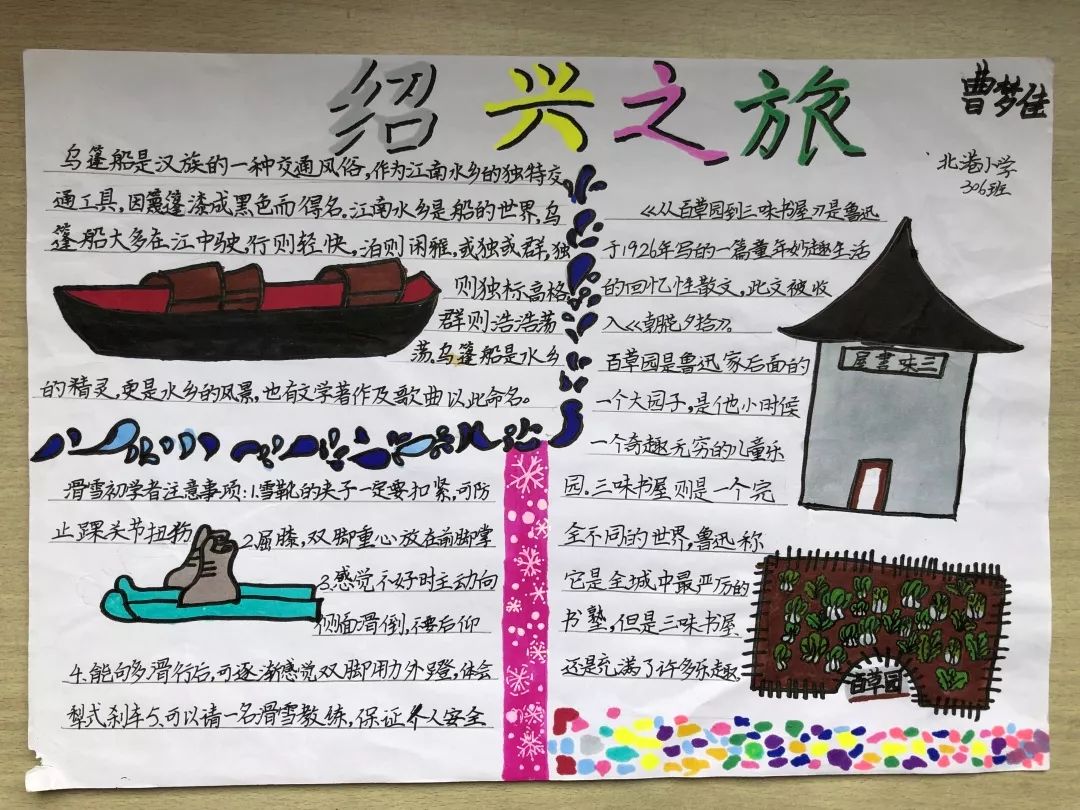 绍兴之旅
曹梦佳
北港小学
306班
乌篷船是汉族的一种交通风俗,作为江南水乡的独特交
通工具,因篾篷漆成黑色而得名。江南水乡是船的世界,乌
篷船大多在江中驶,行则轻快,泊则闲雅,或独或群,独
则独标高格
群则浩浩荡
荡。乌篷船是水乡
的精灵,更是水乡的风景,也有文学著作及歌曲以此命名。
滑雪初学者注意事项:1.雪靴的夹子一定要扣紧,可防
止踝关节扭伤
2.屈膝,双脚重心放在前脚掌
3.感觉不好时主动向
侧面滑倒,不要后仰
4.能向多滑行后,可逐渐感觉双脚用力外蹬,体会
犁式刹车5.可以请一名滑雪教练,保证个人安全
《从百草园到三味书屋》是鲁迅
于1926年写的一篇童年妙趣生活
的回忆性散文,此文被收
入《朝脱夕拾》。
百草园是鲁迅家后面的
一个大园子,是他小时候
一个奇趣无穷的儿童乐
园。三味书屋则是一个完
全不同的世界,鲁迅称
它是全城中最严厉的
书塾,但是三味书屋
还是充满了许多乐趣。
屋書味三
百草园